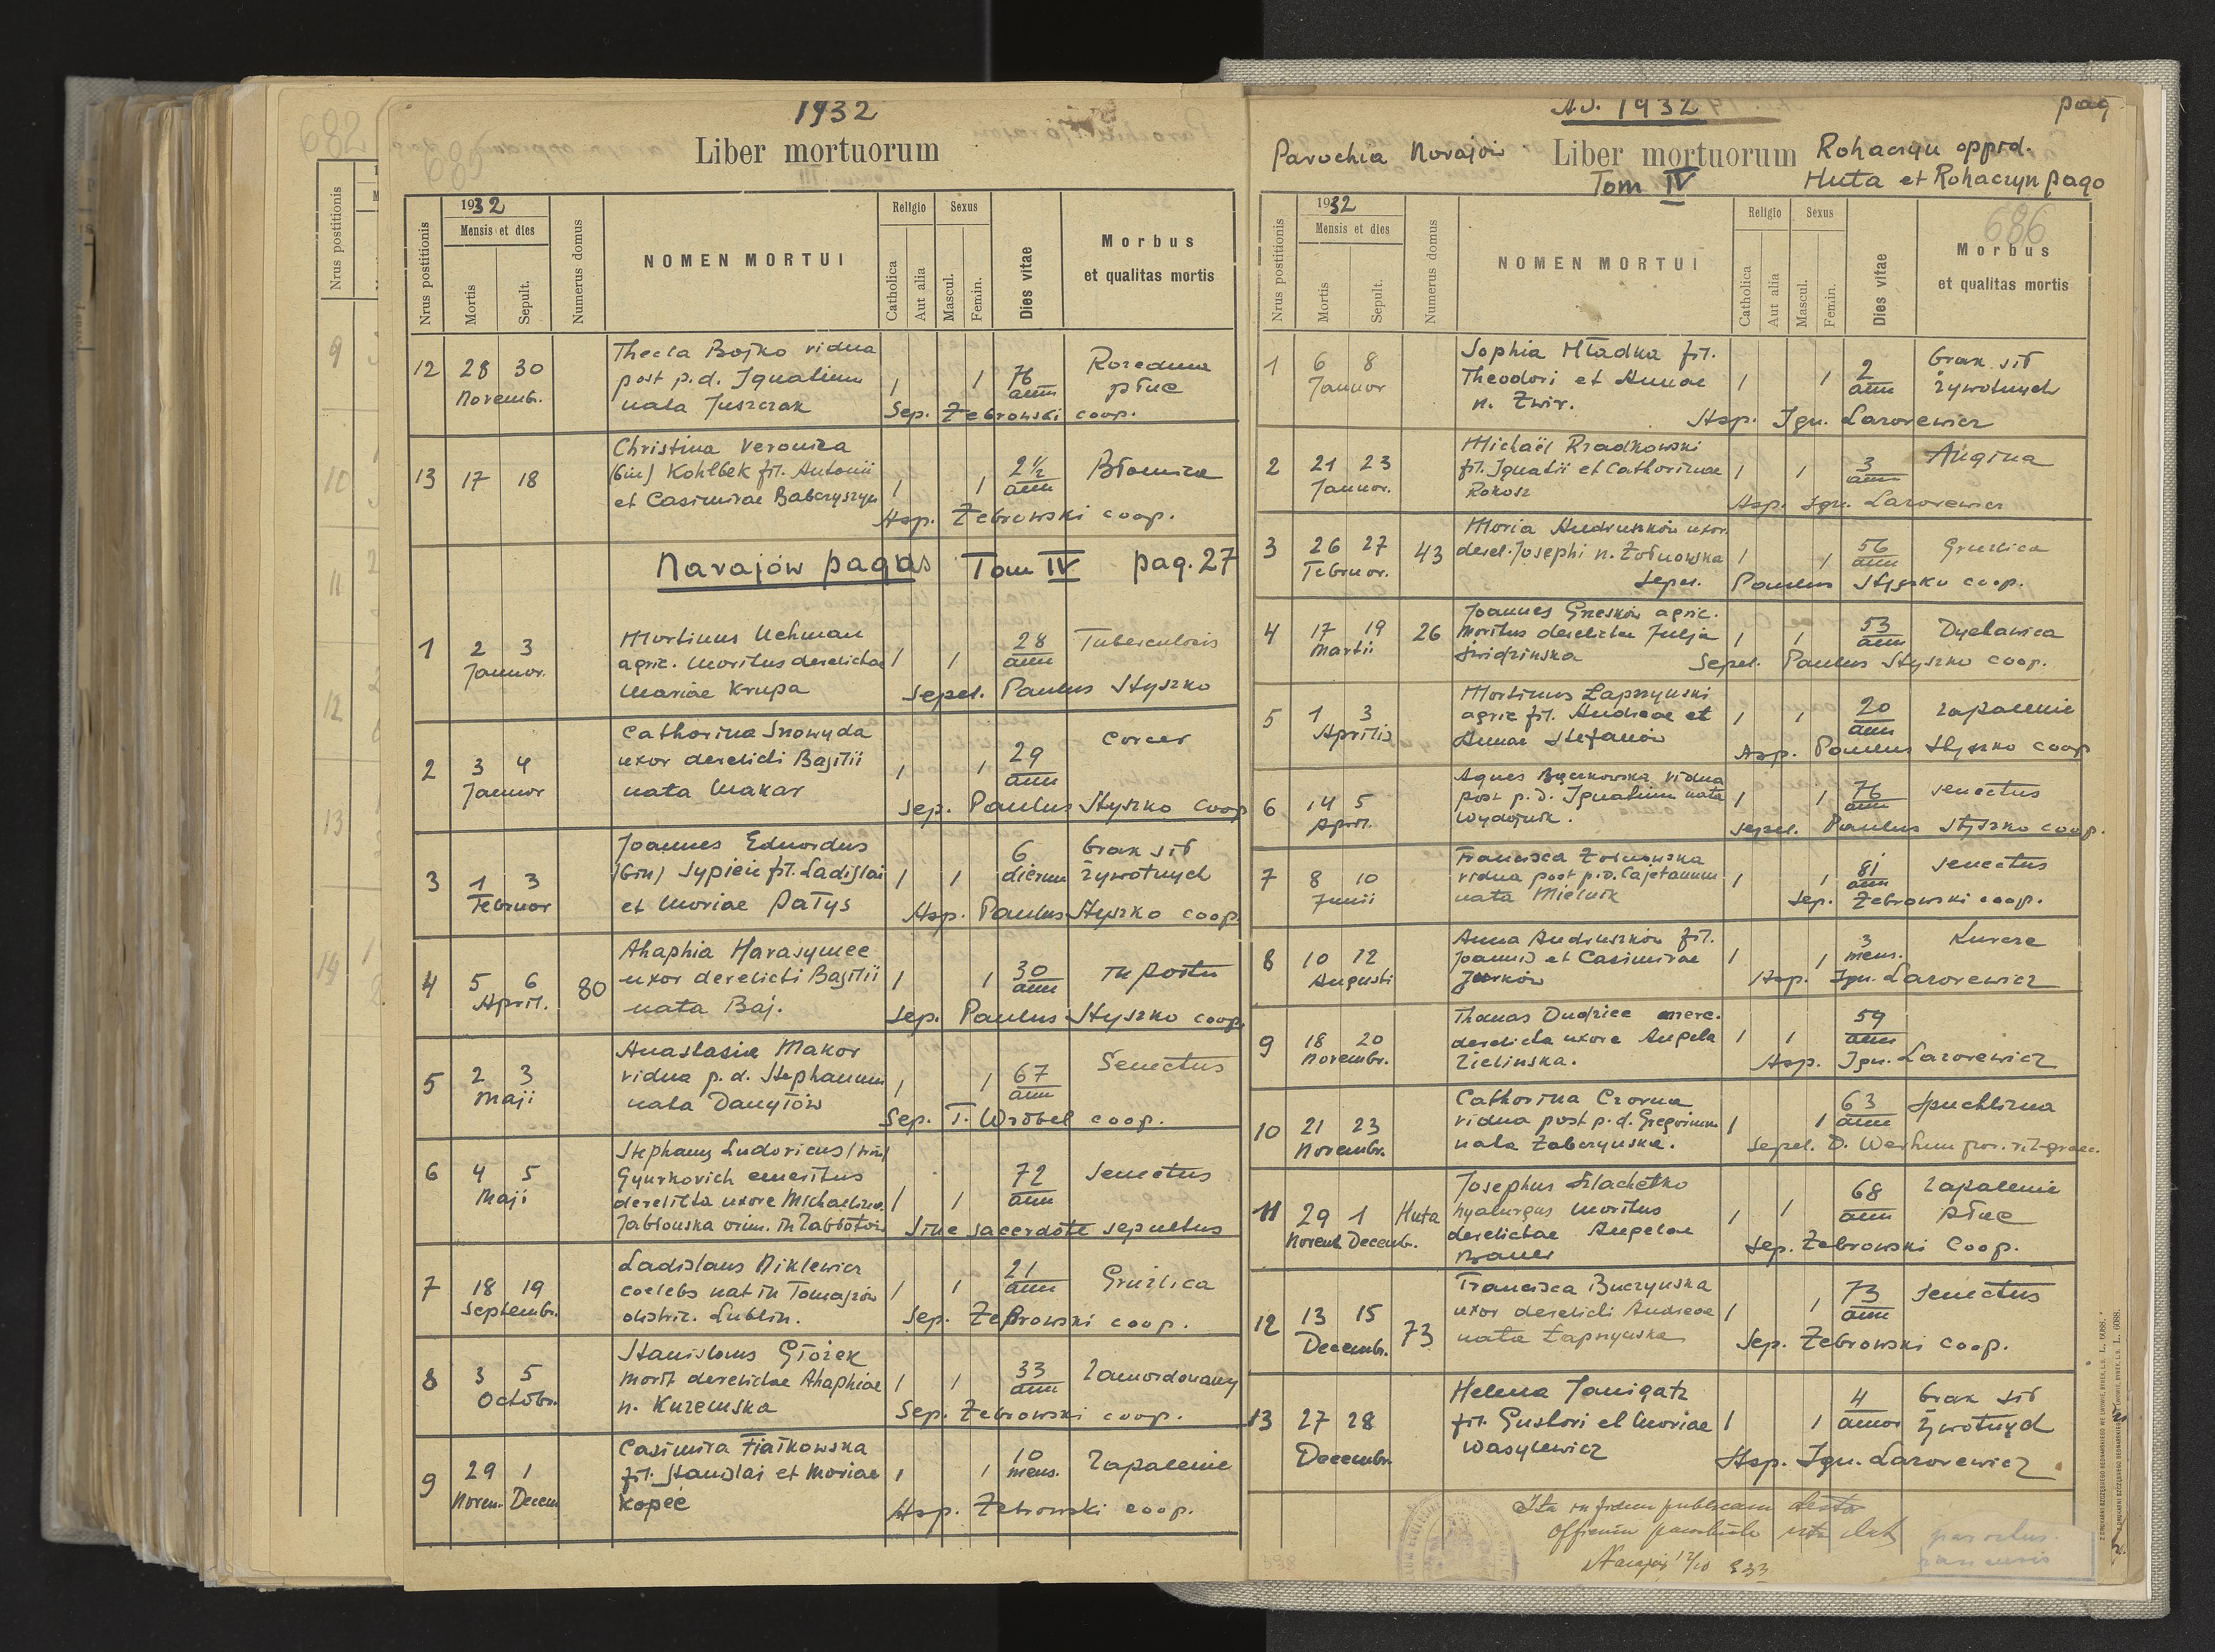 1932
Liber mortuorum
Nrus postitionis
1932
Mensis et dies
Mortis
Sepult.
Numerus domus
NOMEN MORTUI
Religio
Catholica
Aut alia
Sexus
Mascul.
Femin.
Dies vitae
Morbus
et qualitas mortis
12 28 30 Novembr.
Thecla Bojko vidua
post p.d. Ignatium
nata Juszczak
1 1 76 ann
Rozedma
płuc
Sep. Żebrowski coop.
13 17 18
Christina Veronica
(bin) Kohlbek fil. Antonii
et Casimirae Babczyszyn
1 1 2½ ann
Błonica
Asp. Żebrowski coop.
Narajów pagus Tom IV pag. 27
1 2 3 Januar.
Martinus Uchman
agric. maritus derelictae
Mariae Krupa
1 1 28 ann
Tuberculosis
Sepel. Paulus Styszko
2 3 4 Januar
Catharina Snowyda
uxor derelicti Basilii
nata Makar
1 1 29 ann
Cancer
Sep. Paulus Styszko coop
3 1 3 Februar
Joannes Eduardus
(bin) Sypień fil. Ladislai
et Mariae Patys
1 1 6 dierum
brak sił
żywotnych
Asp. Paulus Styszko coop.
4 5 6 April. 80
Ahaphia Harasymec
uxor derelicti Basilii
nata Baj.
1 1 30 ann
in partu
Sep. Paulus Styszko coop.
5 2 3 Maji
Anastasia Makar
vidua p. d. Stephanum
nata Danyłów
1 1 67 ann
Senectus
Sep. T. Wróbel coop.
6 4 5 Maji
Stephanus Ludovicus (bin)
Gyurkovich emeritus
derelicta uxore Michaelina
Jabłonska
1 1 72 ann
Senectus
Sine sacerdote sepultus
7 18 19 Septembr.
Ladislaus Niklewicz
coelebs nat in Tomaszów
distric. Lublin.
1 1 21 ann
Gruźlica
Sep. Żebrowski coop.
8 3 5 Octobr.
Stanislaus Głożek
marit derelictae Ahaphiae
n. Kuzemska
1 1 33 ann
Zamordowany
Sep. Żebrowski coop.
9 29 1 Novem. Decem
Casimira Fiałkowska
fil. Stanislai et Mariae
Kopeć
1 1 10 mens.
Zapalenie
Asp. Żebrowski coop.
AD. 1932
pag
Parochia Narajów
Liber mortuorum
Tom IV
Rohaczyn oppid.
Huta et Rohaczyn pago
686
Nrus postitionis
1932
Mensis et dies
Mortis
Sepult.
Numerus domus
NOMEN MORTUI
Religio
Catholica
Aut alia
Sexus
Mascul.
Femin.
Dies vitae
Morbus
et qualitas mortis
1 6 8 Januar
Sophia Hładka fil.
Theodori et Annae
n. Żwir.
1 1 2 ann
brak sił
żywotnych
Asp. Ign. Lazarewicz
2 21 23 Januar.
Michaël Rzadkowski
fil. Ignatii et Catharinae
Rokosz
1 1 3 ann
Angina
Asp. Ign. Lazarewicz
3 26 27 Februar. 43
Maria Andruszków uxor
derel. Josephi n. Żołnowska
1 1 56 ann
Gruźlica
Sepel. Paulus Styszko coop.
4 17 19 Martii 26
Joannes Greskow agric.
maritus derelictae Julja
Świdzinska
1 1 53 ann
Dychawica
Sepel. Paulus Styszko coop.
5 1 3 Aprilis
Martinus Łapszynski
agric fil. Andreae et
Annae Stefanów
1 1 20 ann
zapalenie
Asp. Paulus Styszko coop
6 14 5 April.
Agnes Bączkowska vidua
post p. d. Ignatium nata
Wydojnik.
1 1 76 ann
senectus
Sepel. Paulus Styszko coop.
7 8 10 Junii
Francisca Żołnowska
vidua post p.d. Cajetanum
nata Mielnik
1 1 81 ann
senectus
Sep. Żebrowski coop.
8 10 12 Augusti
Anna Andruszków fil.
Joannis et Casimirae
Jurków
1 1 3 mens.
Kurcze
Asp. Ign. Lazarewicz
9 18 20 Novembr.
Thomas Dudziec merc.
derelicta uxore Angela
Zielinska.
1 1 59 ann
Asp. Ign. Lazarewicz
10 21 23 Novembr.
Catharina Czorna
vidua post p. d. Gregorium
nata Zabczynska.
1 1 63 ann
Spuchlizna
Sepel. D. par. rit. graec.
11 29 1 Novemb. Decembr. Huta
Josephus Szlachetko
hyalurgus maritus
derelictae Angelae
Bauer
1 1 68 ann
zapalenie
płuc
Sep. Żebrowski Coop.
12 13 15 Decembr. 73
Francisca Buczynska
uxor derelicti Andreae
nata Łapszynska
1 1 73 ann
Senectus
Sep. Żebrowski coop.
13 27 28 Decembr.
Helena Janigatz
fil. Gustavi et Mariae
Wasylewicz
1 1 4 annor
brak sił
żywotnych
Asp. Ign. Lazarewicz
Ita in fidem publicam
Officium parochiale
Narajów 12/10 933